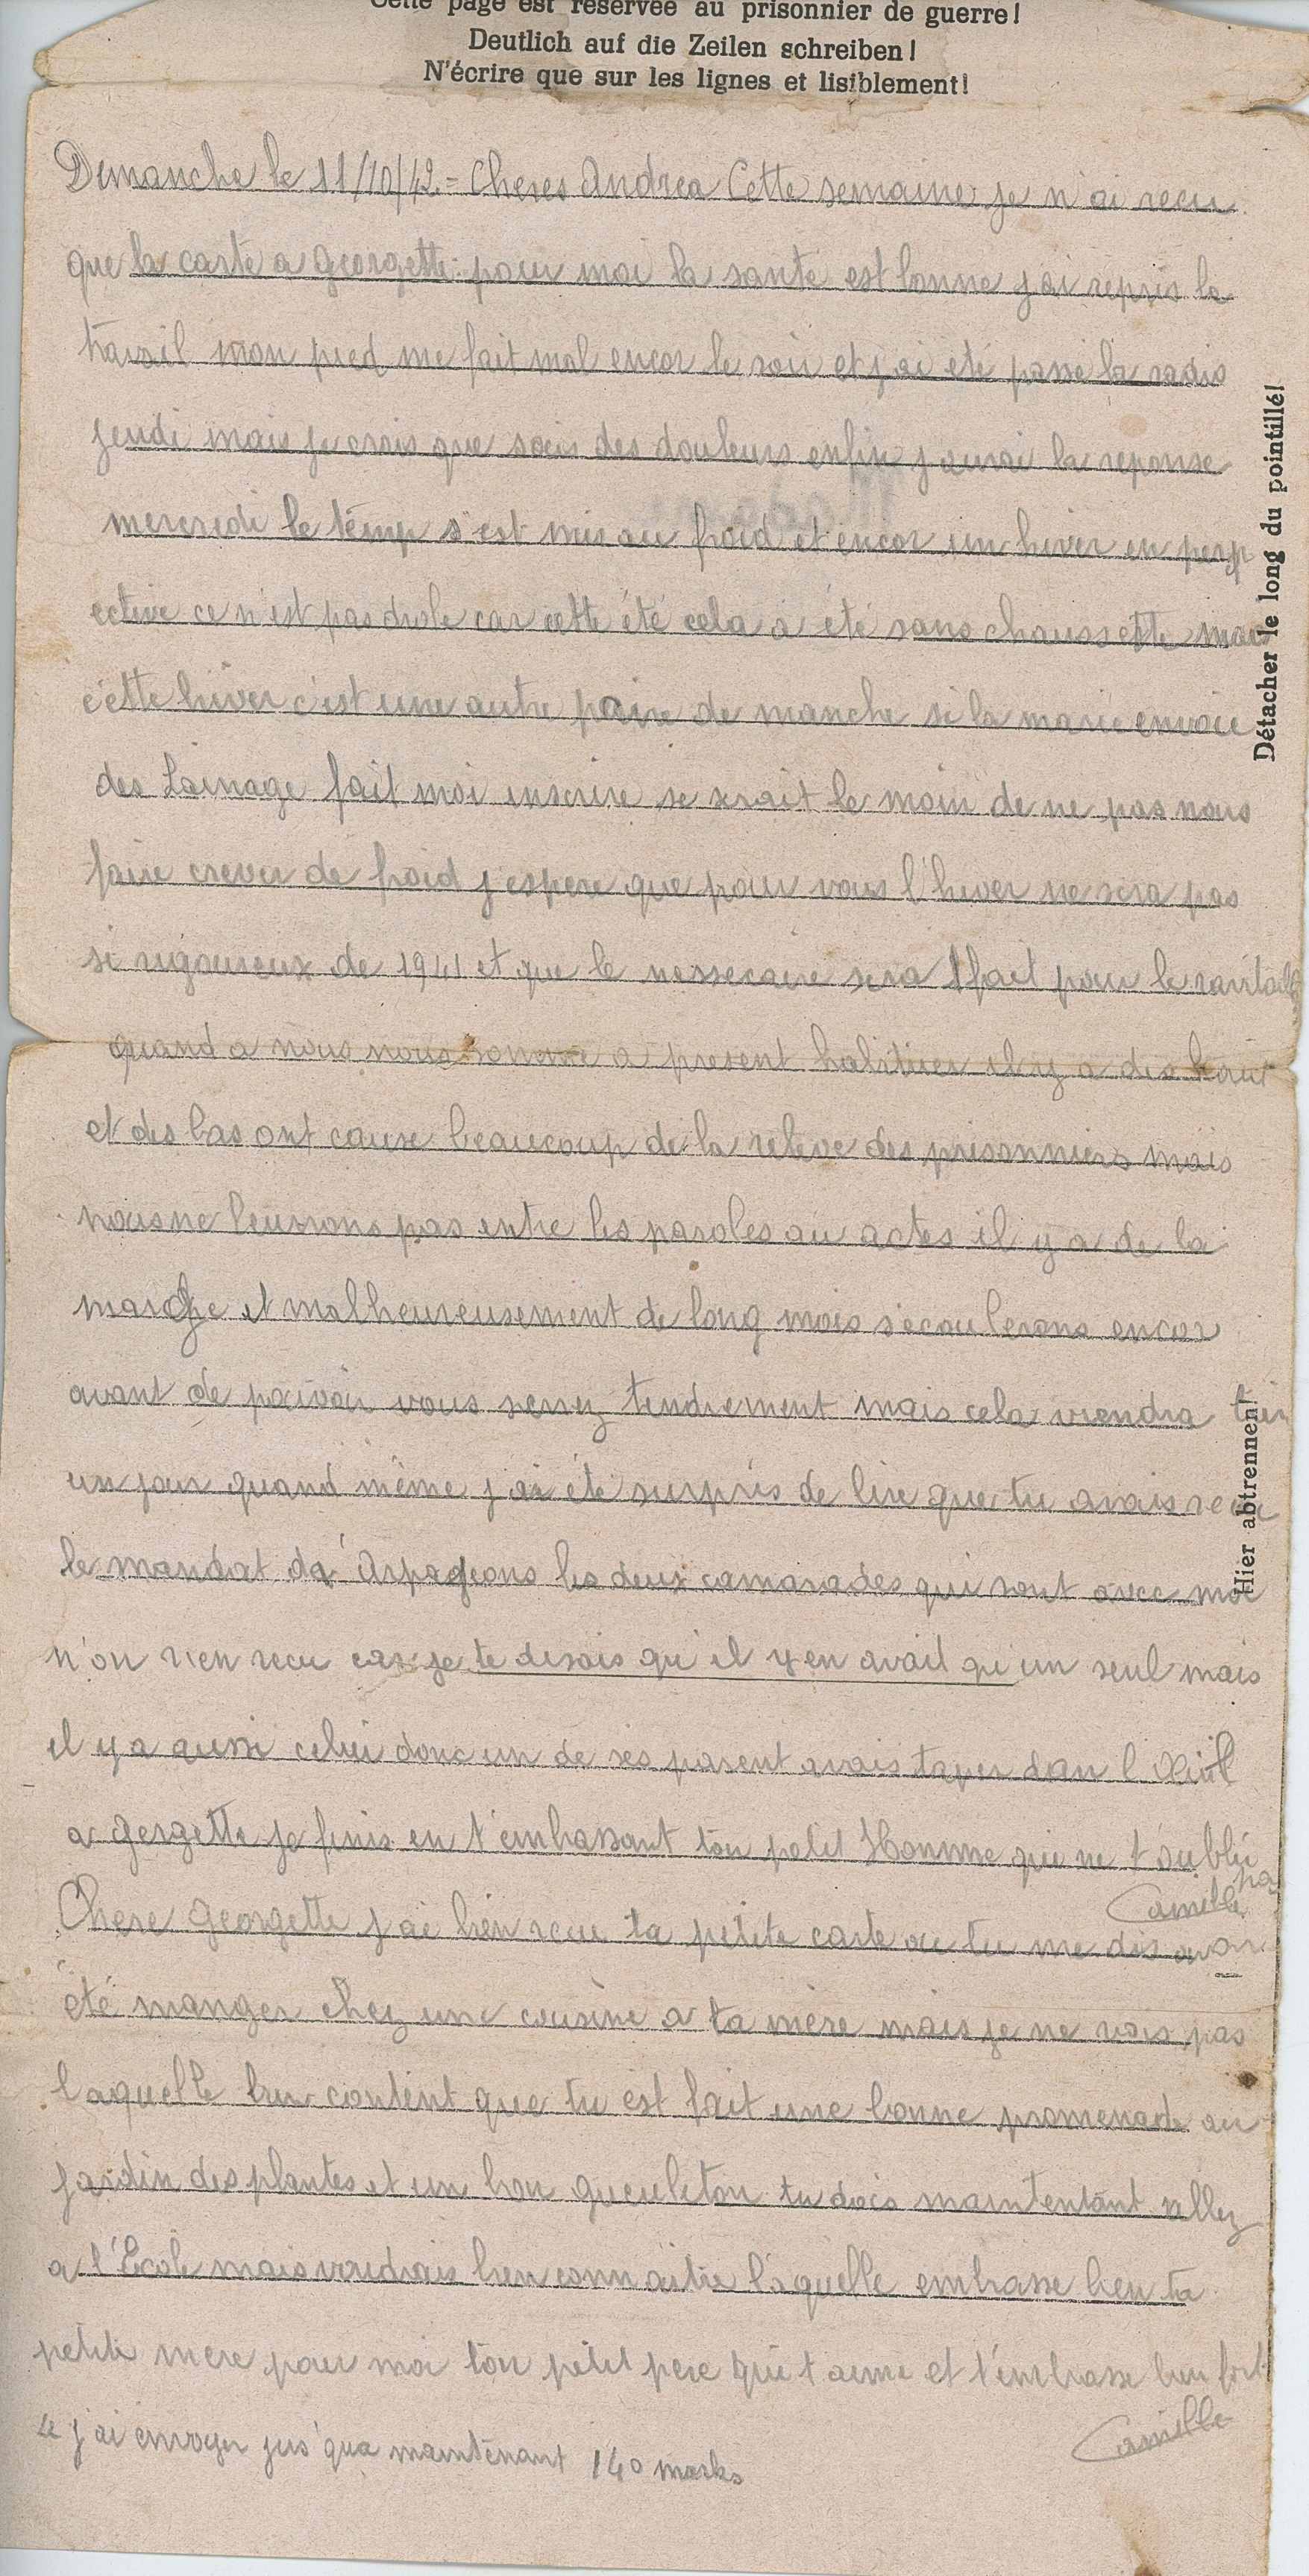 Cette page est réservée au prisonnier de guerre!
Deutlich auf die Zeilen schreiben!
N'écrire que sur les lignes et lisiblement!
Dimanche le 11/10/42 - Cheres Andrea Cette semaine je n'ai recu
que la carte a Georgette pour moi la santé est bonne j'ai repris le
travail mon pied me fait mal encor le soir et j'ai eté passé la radio
jeudi mais je crois que sais des douleurs enfin j'aurai la reponse
mercredi le temp s'est mis au froid et encor un hiver en persp
ective ce n'est pas drole car cette été cela a été sans chaussette mais
cette hiver c'est une autre paire de manche si la mairie envoie
des Lainage fait moi inscrire se serait le moin de ne pas nous
faire crever de froid j'espere que pour vous l'hiver ne sera pas
si rigoureux de 1941 et que le nessecaire sera fait pour le ravitail
quand a nous nous somme a present habituer il y a des haut
et des bas ont cause beaucoup de la releve des prisonniers mais
nous ne leurrons pas entre les paroles au actes il y a de la
marge et malheureusement de long mois s'ecoulerons encor
avant de pouvoir vous serrez tendrement mais cela viendra
un jour quand même j'ai été surpris de lire que tu avais recu
le mandat d'Arpageons les deux camarades qui sont avec moi
n'on rien recu car je te disais qu'il y en avait qu'un seul mais
il y a aussi celui donc un de ses parent avais taper dan l'Œuil
a Gergette je finis en t'embrassant ton petit Homme qui ne t'oublie
pas
Camille
Chere Georgette j'ai bien recu ta petite carte ou tu me dis avoir
été manger chez une cousine a ta mère mais je ne vois pas
laquelle bien content que tu est fait une bonne promenade au
jardin des plantes et un bon gueuleton tu dois maintentant allez
a l'École mais voudrais bien connaitre laquelle embrasse bien ta
petite mere pour moi ton petit pere qui t'aime et t'embrasse bien fort
Camille
j'ai envoyer jus'qua maintenant 140 marks
Détacher le long du pointillé!
Hier abtrennen!